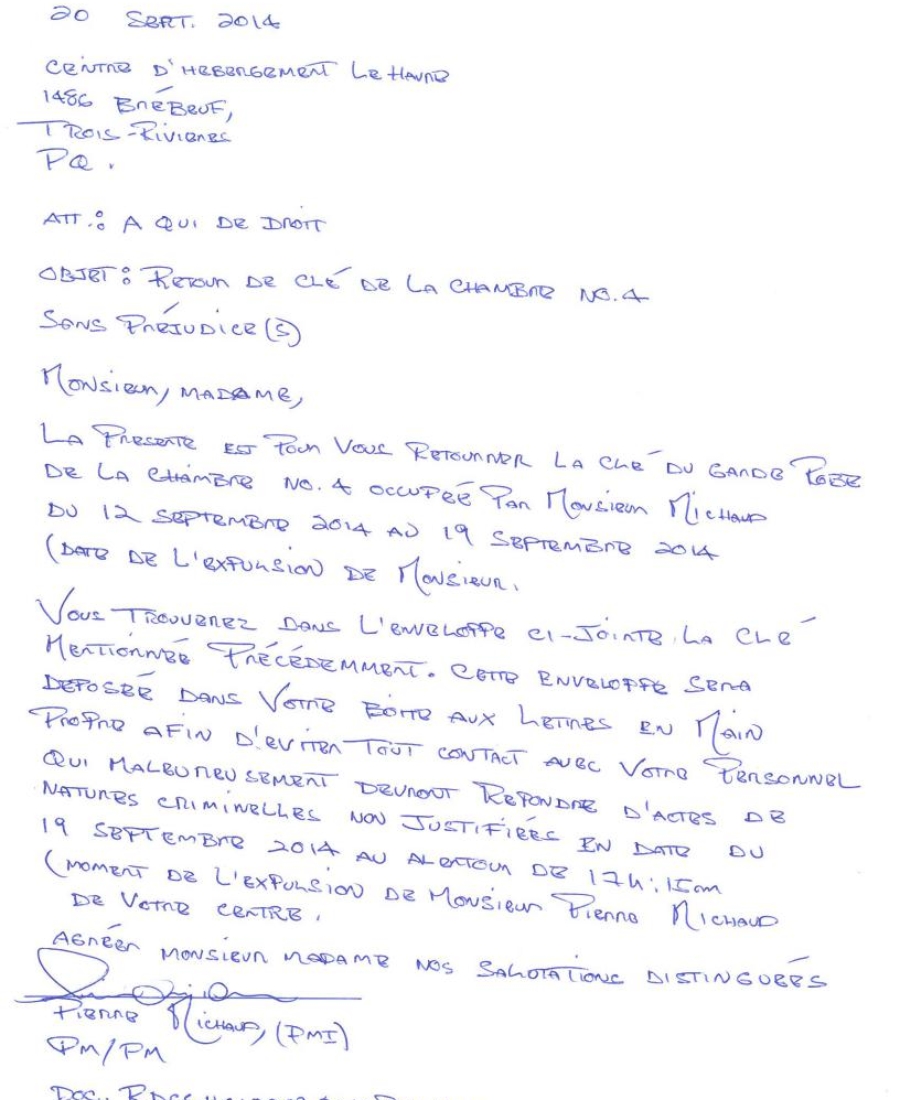 20 SEPT. 2014
CENTRE D'HEBERGEMENT LE HAVRE
1486 BRÉBEUF,
TROIS-RIVIERES
PQ.
ATT.: A QUI DE DROIT
OBJET: RETOUR DE CLÉ DE LA CHAMBRE NO. 4
SANS PRÉJUDICE(S)
MONSIEUR, MADAME,
LA PRESENTE EST POUR VOUS RETOURNER LA CLÉ DU GARDE ROBE
DE LA CHAMBRE NO. 4 OCCUPÉE PAR MONSIEUR MICHAUD
DU 12 SEPTEMBRE 2014 AU 19 SEPTEMBRE 2014
(DATE DE L'EXPULSION DE MONSIEUR.
VOUS TROUVEREZ DANS L'ENVELOPPE CI-JOINTE LA CLÉ
MENTIONNÉE PRÉCÉDEMMENT. CETTE ENVELOPPE SERA
DEPOSÉE DANS VOTRE BOITE AUX LETTRES EN MAIN
PROPRE AFIN D'EVITER TOUT CONTACT AVEC VOTRE PERSONNEL
QUI MALEUREUSEMENT DEVRONT REPONDRE D'ACTES DE
NATURES CRIMINELLES NON JUSTIFIÉES EN DATE DU
19 SEPTEMBRE 2014 AU ALENTOUR DE 17H:15
(MOMENT DE L'EXPULSION DE MONSIEUR PIERRE MICHAUD
DE VOTRE CENTRE.
AGRÉER MONSIEUR MADAME NOS SALUTATIONS DISTINGUÉES
PIERRE MICHAUD, (PMI)
PM/PM
DOC.